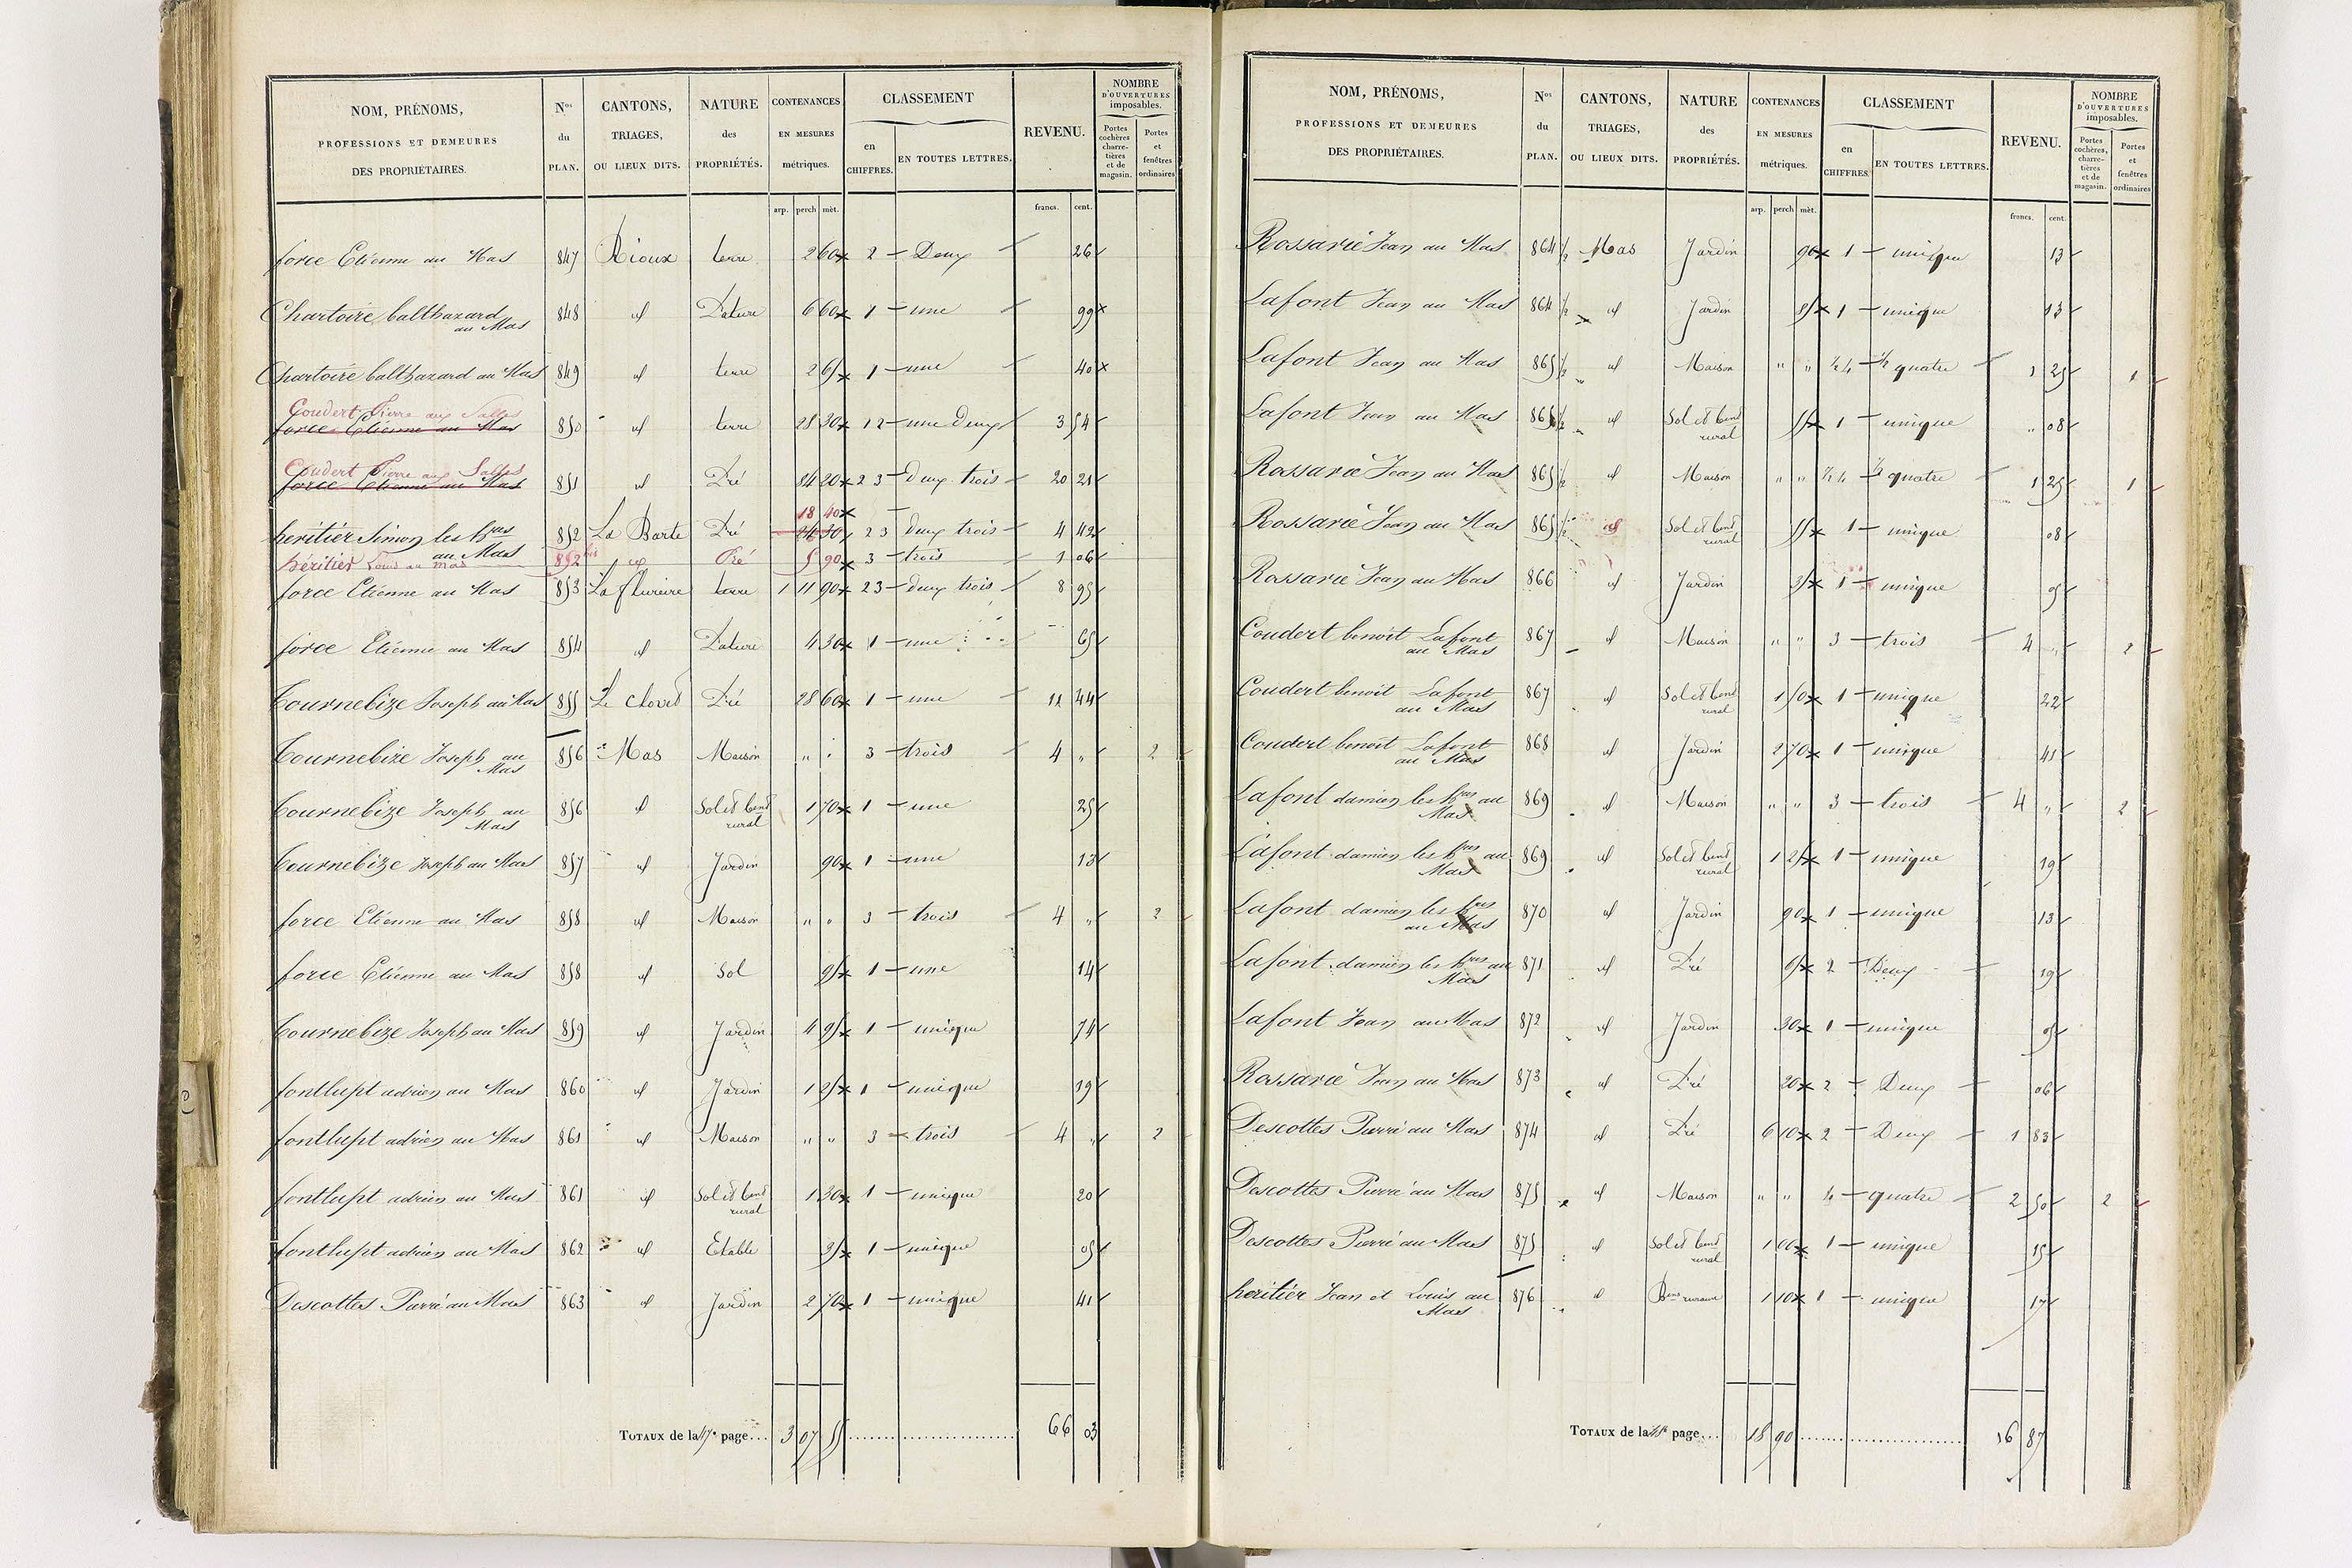 NOM, PRÉNOMS, PROFESSIONS ET DEMEURES DES PROPRIÉTAIRES.
Nos du PLAN.
CANTONS, TRIAGES, OU LIEUX DITS.
NATURE des PROPRIÉTÉS.
CONTENANCES EN MESURES métriques.
CLASSEMENT
en CHIFFRES.
EN TOUTES LETTRES.
REVENU.
NOMBRE D'OUVERTURES imposables.
Portes cochères charretières et de magasin.
Portes et fenêtres ordinaires
arp. perch mèt. francs. cent.
force Etienne au Mas 847 Rioux terre 2 60 2 Deux 26
Chartoire balthazard au Mas 848 id Pature 6 60 1 une 99
Chartoire balthazard au Mas 849 id terre 2 65 1 une 40
Coudert Pierre aux Salles
force Etienne au Mas 850 id terre 28 30 1 2 une Deux 3 54
Coudert Pierre aux Salles
force Etienne au Mas 851 id Pré 84 20 2 3 Deux trois 20 21
18 40
heritier Simon les hers au Mas 852 La Barte Pré 24 30 2 3 deux trois 4 42
héritier Louis au mas 852 bis id Pré 5 90 3 trois 1 06
force Etienne au Mas 853 terre 1 11 90 2 3 deux trois 8 95
force Etienne au Mas 854 id Pature 4 30 1 une 65
Tournebize Joseph au Mas 855 Pré 28 60 1 une 11 44
Tournebize Joseph au Mas 856 Mas Maison " " 3 trois 4 " 2
Tournebize Joseph au Mas 856 id Sol et bend rural 1 70 1 une 25
Tournebize Joseph au Mas 857 id Jardin 90 1 une 13
force Etienne au Mas 858 id Maison " " 3 trois 4 " 2
force Etienne au Mas 858 id Sol 95 1 une 14
Tournebize Joseph au Mas 859 id Jardin 4 95 1 unique 74
fontlupt adrien au Mas 860 id Jardin 1 25 1 unique 19
fontlupt adrien au Mas 861 id Maison " " 3 trois 4 " 2
fontlupt adrien au Mas 861 id Sol et bend rural 1 30 1 unique 20
fontlupt adrien au Mas 862 id Etable 35 1 unique 05
Descottes Pierre au Mas 863 id Jardin 2 70 1 unique 41
TOTAUX de la 47e page... 3 07 55 66 03
NOM, PRÉNOMS, PROFESSIONS ET DEMEURES DES PROPRIÉTAIRES.
Nos du PLAN.
CANTONS, TRIAGES, OU LIEUX DITS.
NATURE des PROPRIÉTÉS.
CONTENANCES EN MESURES métriques.
CLASSEMENT
en CHIFFRES.
EN TOUTES LETTRES.
REVENU.
NOMBRE D'OUVERTURES imposables.
Portes cochères, charretières et de magasin.
Portes et fenêtres ordinaires
arp. perch mèt. francs. cent.
Rossarie Jean au Mas 864 1/2 Mas Jardin 90 1 unique 13
Lafont Jean au Mas 864 1/2 id Jardin 85 1 unique 13
Lafont Jean au Mas 865 1/2 id Maison " " 1/2 4 1/2 quatre 1 25 1
Lafont Jean au Mas 865 1/2 id Sol et bend rural 55 1 unique " 08
Rossarie Jean au Mas 865 1/2 id Maison " " 1/2 4 1/2 quatre 1 25 1
Rossarie Jean au Mas 865 1/2 id Sol et bend rural 55 1 unique 08
Rossarie Jean au Mas 866 id Jardin 35 1 unique 05
Coudert benoit Lafont au Mas 867 id Maison " " 3 trois 4 " 2
Coudert benoit Lafont au Mas 867 id Sol et bend rural 1 50 1 unique 22
Coudert benoit Lafont au Mas 868 id Jardin 2 70 1 unique 41
Lafont damien les hers au Mas 869 id Maison " " 3 trois 4 " 2
Lafont damien les hers au Mas 869 id Sol et bend rural 1 25 1 unique 19
Lafont damien les hers au Mas 870 id Jardin 90 1 unique 13
Lafont damien les hers au Mas 871 id Pré 65 2 Deux 19
Lafont Jean au Mas 872 id Jardin 30 1 unique 05
Rossarie Jean au Mas 873 id Pré 20 2 Deux 06
Descottes Pierre au Mas 874 id Pré 6 10 2 Deux 1 83
Descottes Pierre au Mas 875 id Maison " " 4 quatre 2 50 2
Descottes Pierre au Mas 875 id Sol et bend rural 1 00 1 unique 15
heritier Jean et Louis au Mas 876 id 1 10 1 unique 17
TOTAUX de la 48e page... 18 90 16 87